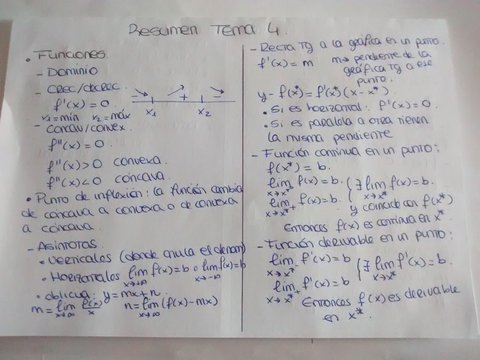 Resumen Tema 4
• Funciones
- Dominio
- Crec/decrec
f'(x) = 0
x₁ = mín x₂ = máx
- + -
x₁ x₂
- Concav/convex
f''(x) = 0.
f''(x) > 0 convexa.
f''(x) < 0 cóncava.
• Punto de inflexión: la función cambia
de cóncava a convexa o de convexa
a cóncava.
- Asíntotas
• Verticales (donde anula el denom)
• Horizontales lim x→+∞ f(x) = b o lim x→-∞ f(x) = b
• oblicua: y = mx + n.
m = lim x→∞ f(x)/x n = lim x→∞ (f(x) - mx)
- Recta Tg a la gráfica en un punto.
f'(x) = m m → pendiente de la
gráfica Tg a ese
punto.
y - f(x*) = f'(x*)(x - x*)
• Si es horizontal: f'(x) = 0.
• Si es paralela a otra tienen
la misma pendiente
- Función continua en un punto:
f(x*) = b.
lim x→x* f(x) = b. { ∃ lim x→x* f(x) = b.
lim x→x* f(x) = b. y coincide con f(x*)
Entonces f(x) es continua en x*
- Función derivable en un punto:
lim x→x* f'(x) = b { ∃ lim x→x* f'(x) = b.
lim x→x* f'(x) = b
Entonces f(x) es derivable
en x*.